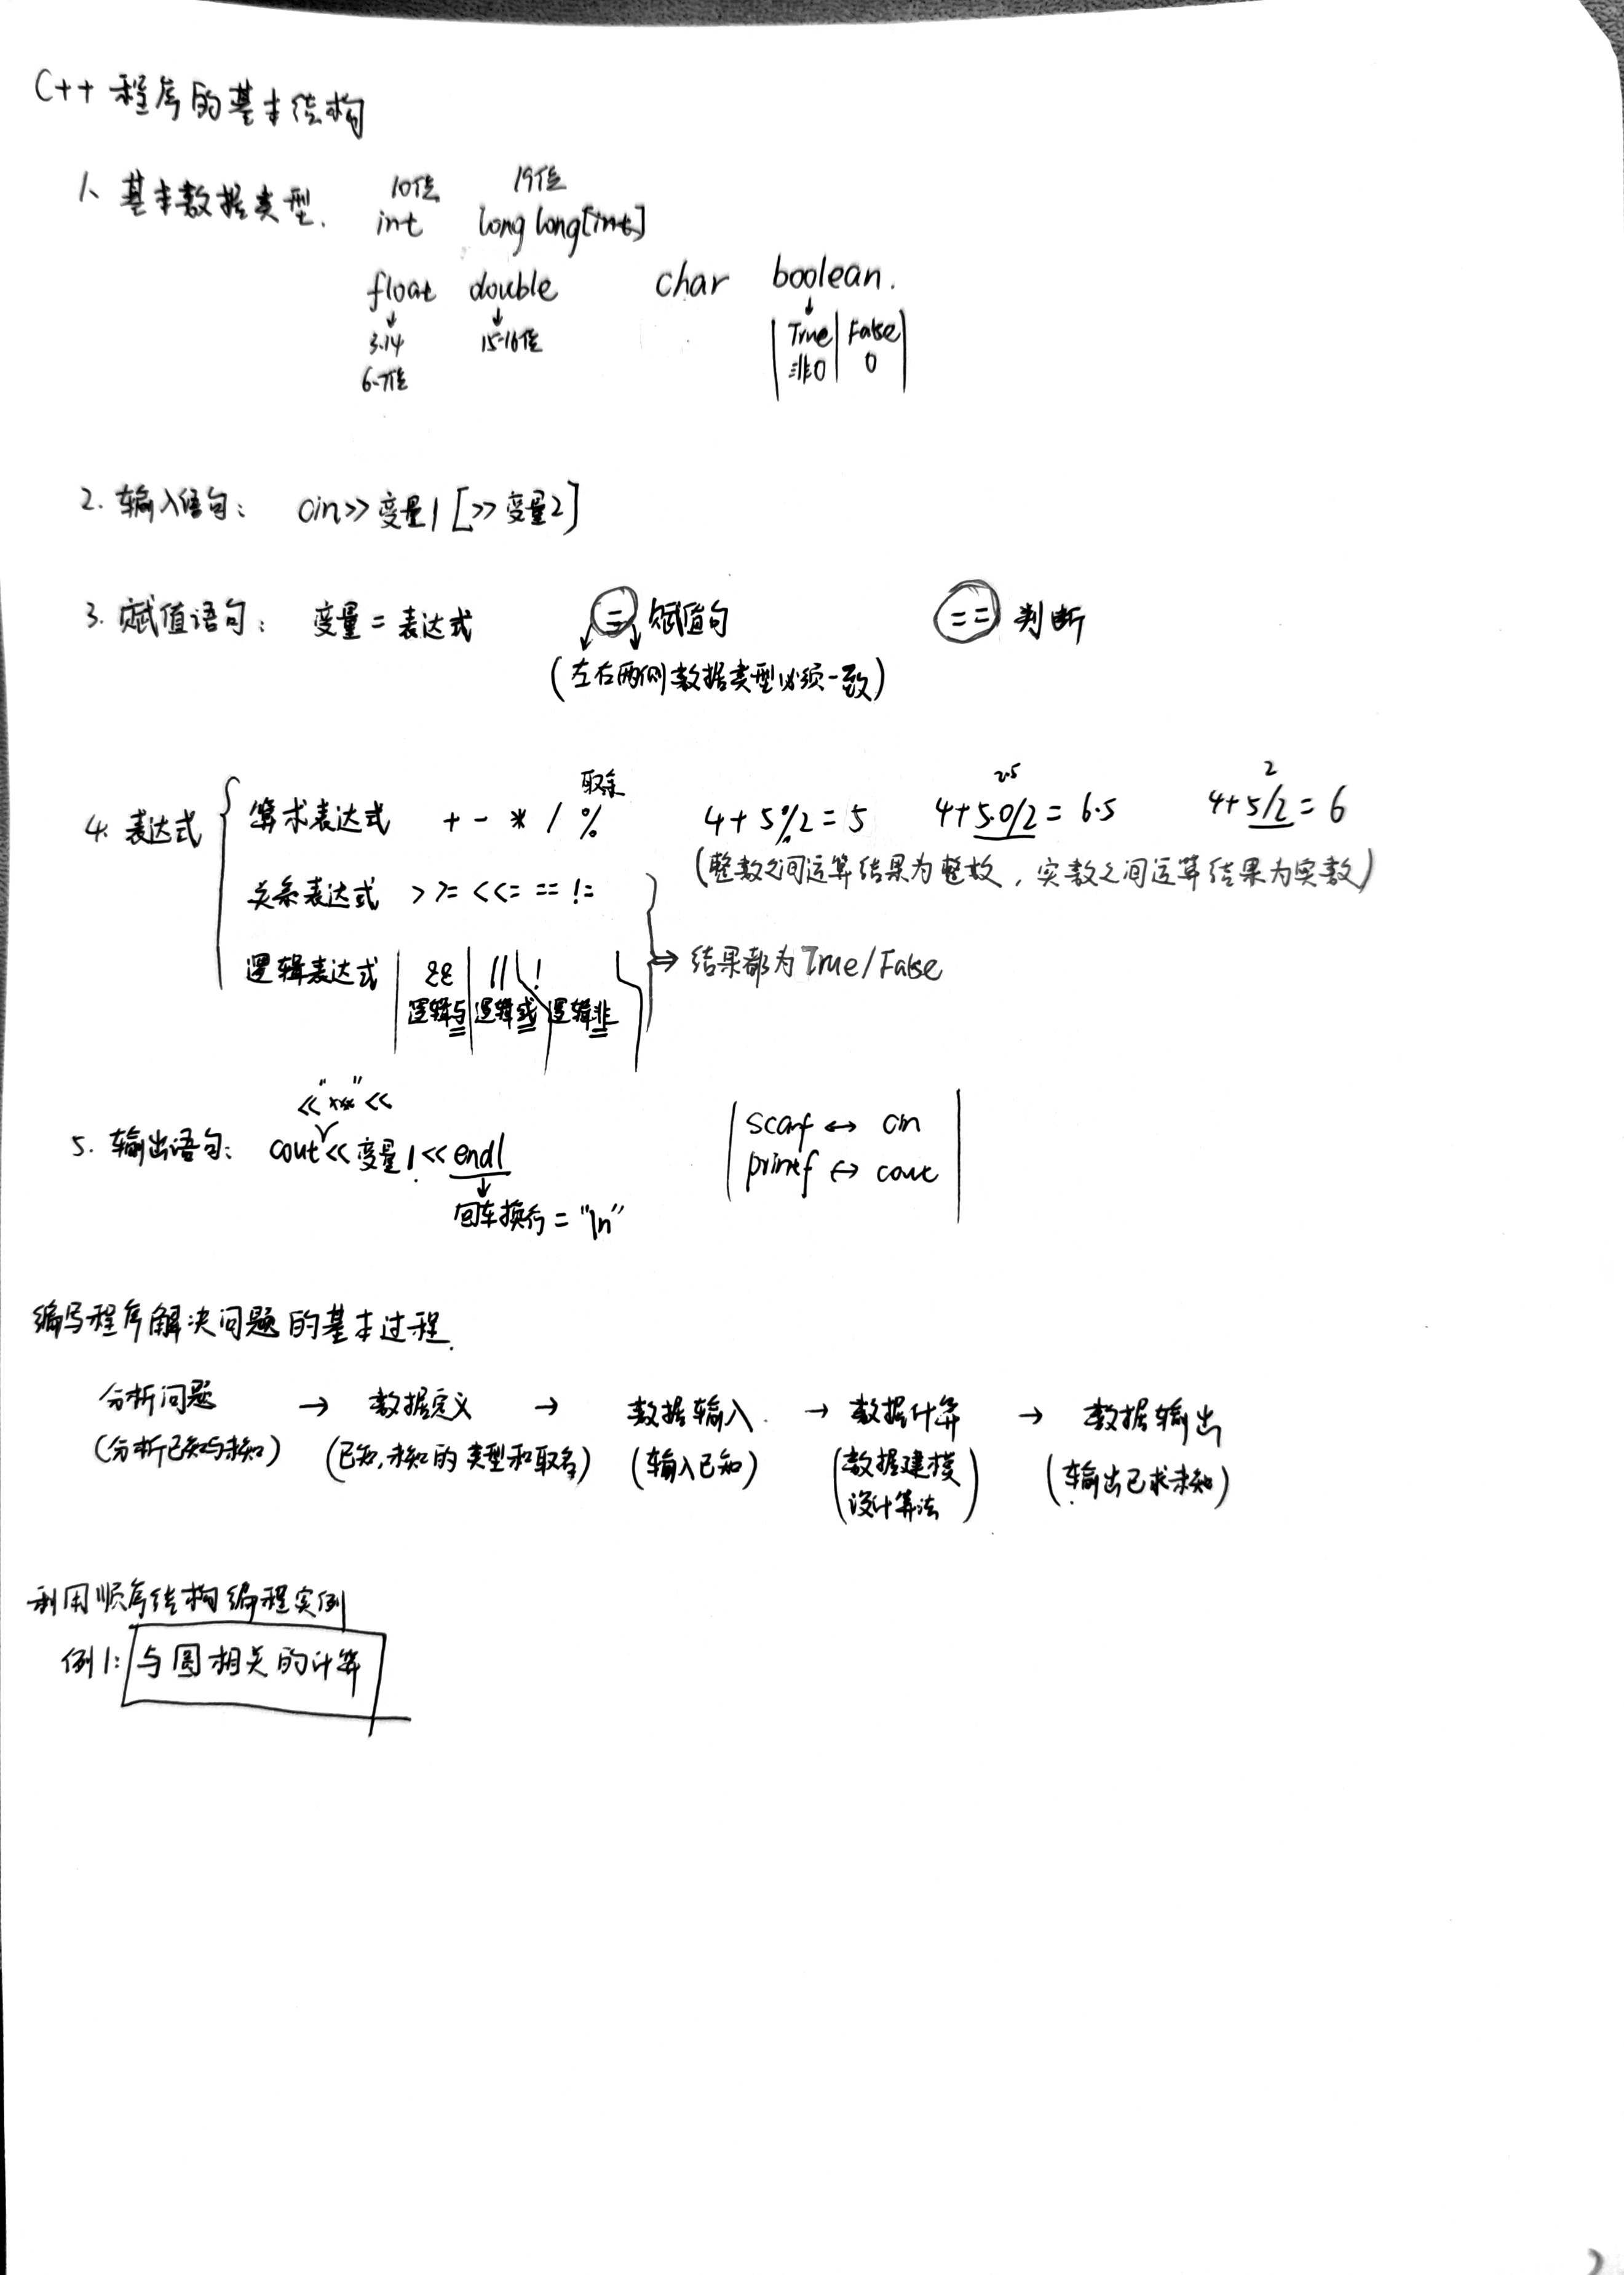 C++ 程序的基本结构
1、基本数据类型.
10位 19位
int long long[int]
float double char boolean.
3.14 15-16位 True False
6-7位 非0 0
2. 输入语句: cin>>变量1 [>>变量2]
3. 赋值语句: 变量=表达式 = 赋值句 == 判断
(左右两侧数据类型必须一致)
取余 2.5 2
4. 表达式 算术表达式 + - * / % 4+5%2=5 4+5.0/2=6.5 4+5/2=6
(整数之间运算结果为整数, 实数之间运算结果为实数)
关系表达式 > >= < <= == !=
逻辑表达式 && || ! ⇒ 结果都为True/False
逻辑与 逻辑或 逻辑非
<<"xxx"<<
5. 输出语句: cout<<变量1<<endl
回车换行="\n"
scanf ↔ cin
printf ↔ cout
编写程序解决问题的基本过程.
分析问题 → 数据定义 → 数据输入 → 数据计算 → 数据输出
(分析已知与未知) (已知,未知的类型和取名) (输入已知) (数据建模 (输出已求未知)
设计算法)
利用顺序结构编程实例
例1: 与圆相关的计算